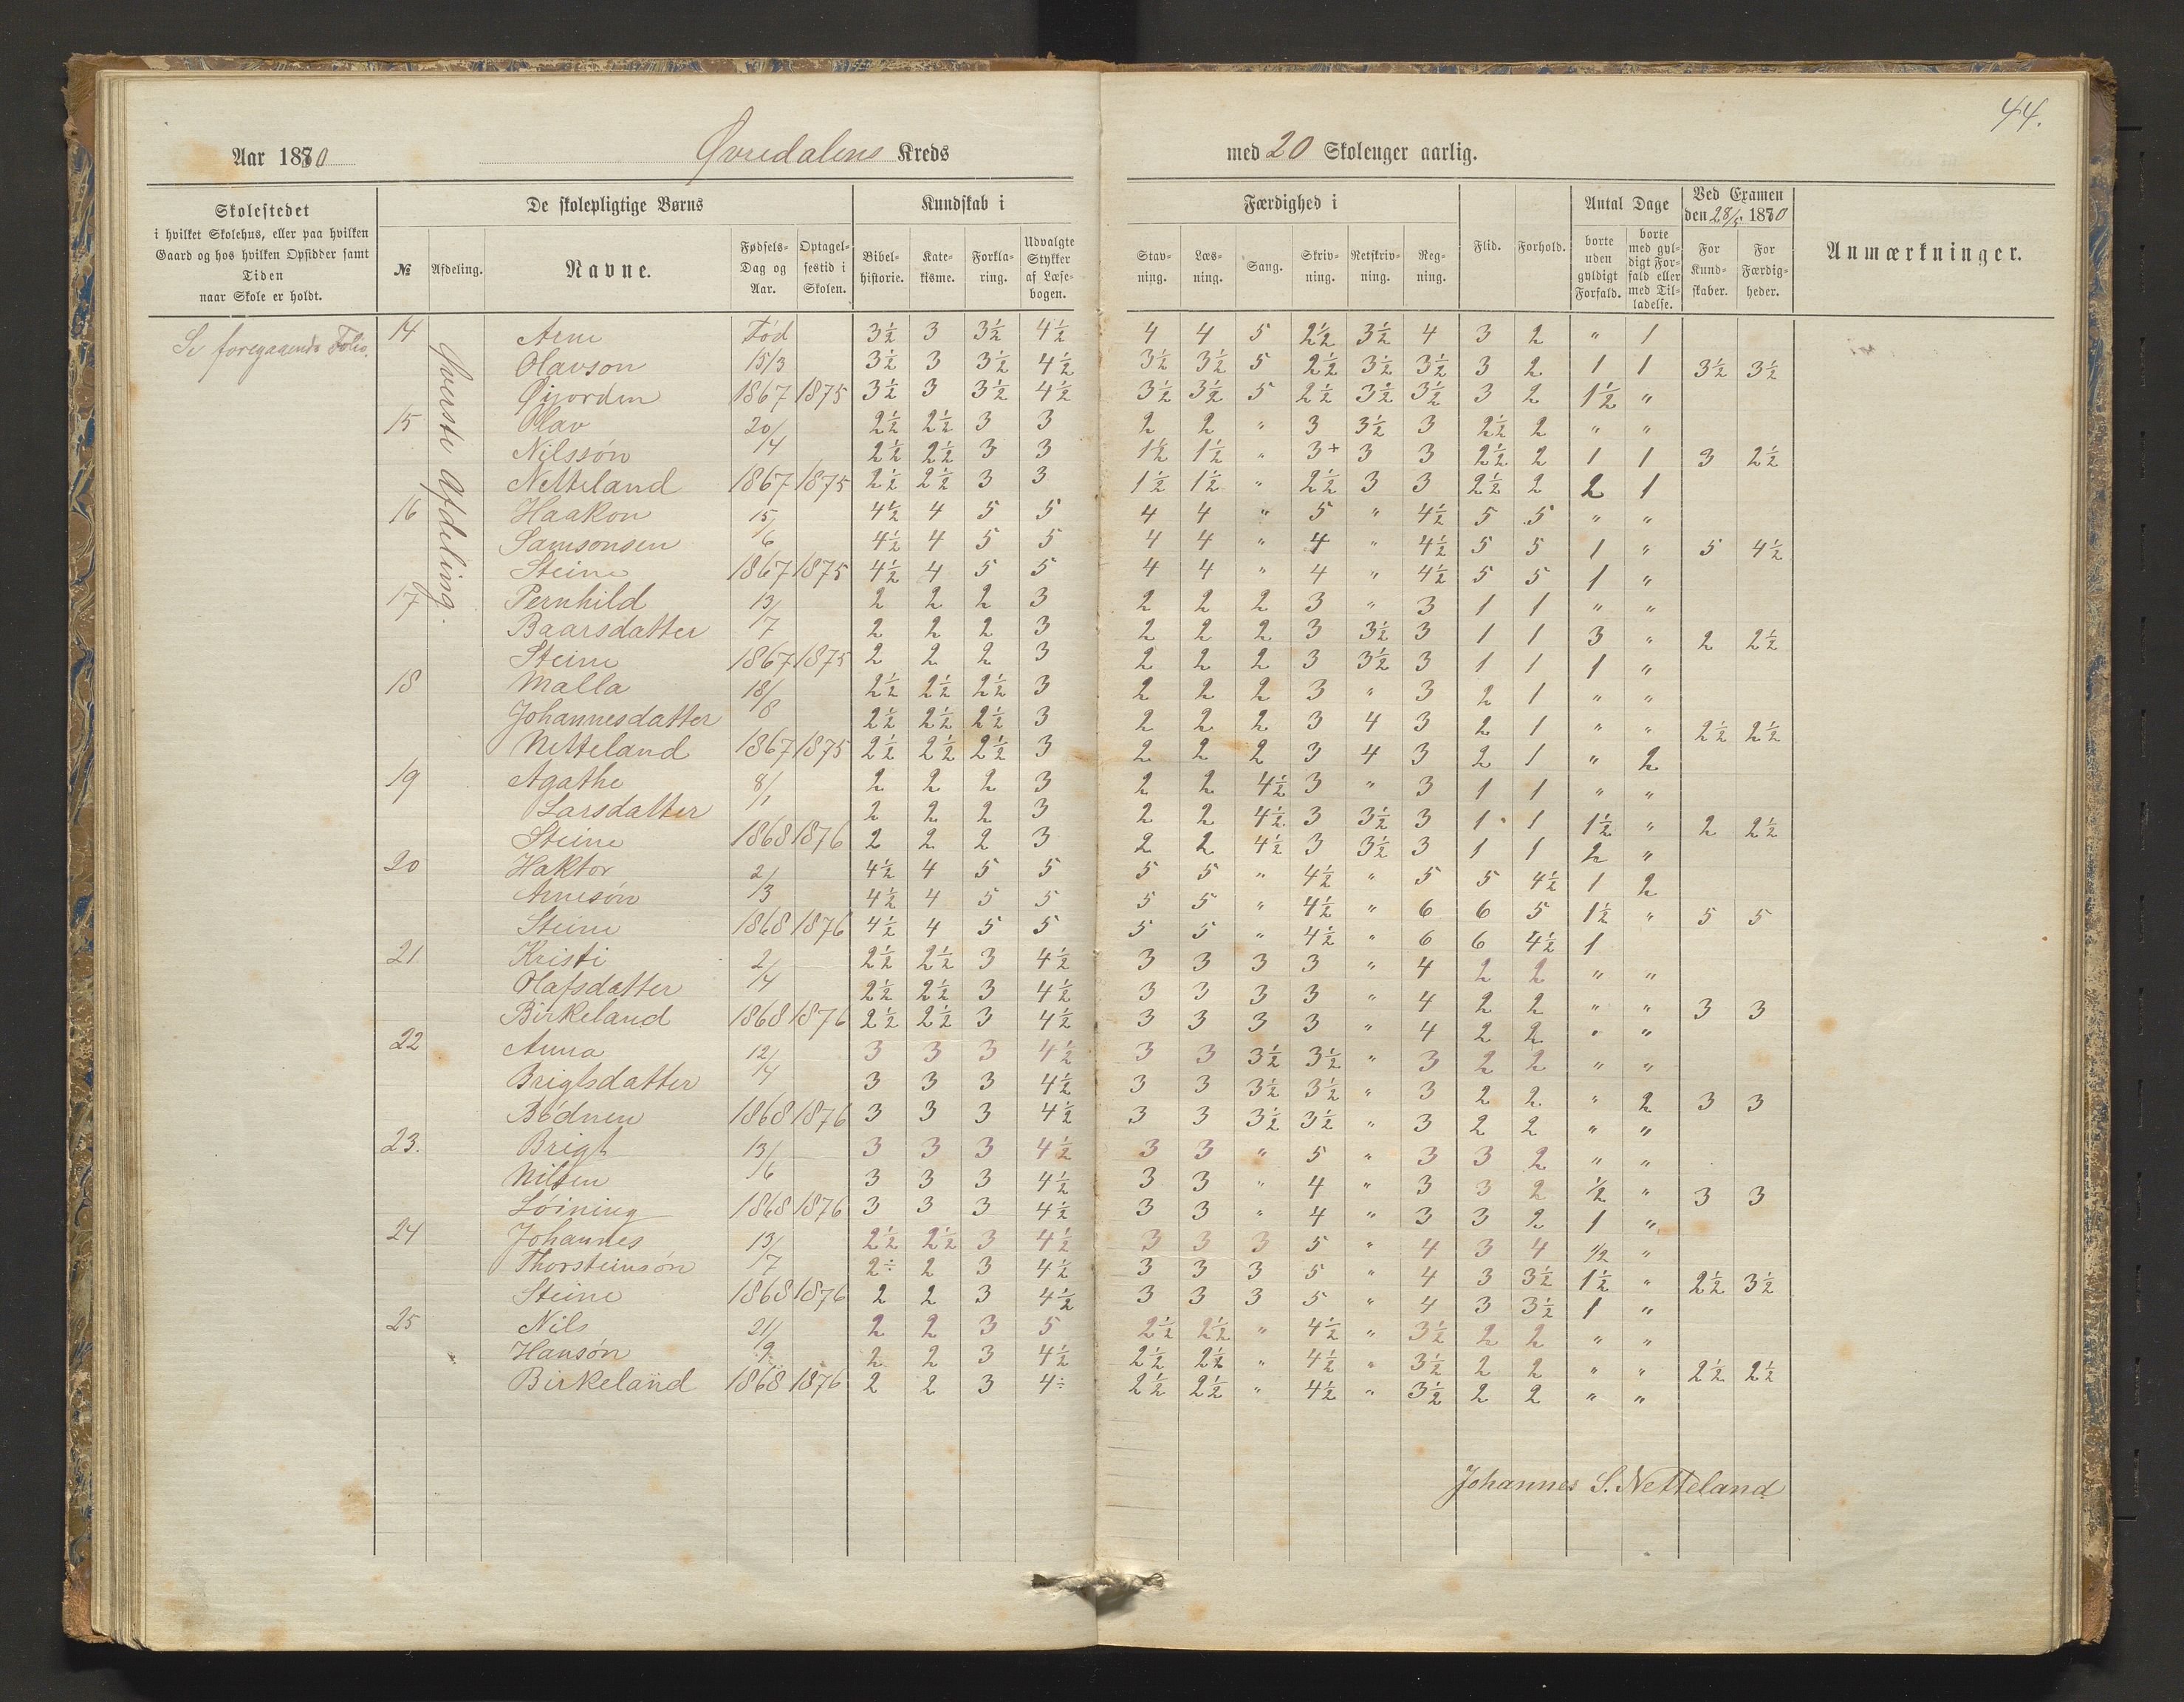 44.
Aar 1880 Øvredalens Kreds med 20 Skolenger aarlig.
Skolestedet
i hvilket Skolehus, eller paa hvilken
Gaard og hos hvilken Opsidder samt
Tiden
naar Skole er holdt.
De skolepligtige Børns
№ Afdeling. Navne. Fødsels-Dag og Aar. Optagel-sestid i Skolen.
Kundskab i
Bibel-historie. Kate-kisme. Forkla-ring. Udvalgte Stykker af Læse-bogen.
Færdighed i
Stav-ning. Læs-ning. Sang. Skriv-ning. Retskriv-ning. Reg-ning.
Flid. Forhold.
Antal Dage
borte uden gyldigt Forfald. borte med gyl-digt For-fald eller med Til-ladelse.
Ved Examen
den 28/5 1880
For Kund-skaber. For Færdig-heder.
Anmærkninger.
Se foregaaende Folio.
Øverste Afdeling.
14 Arne Fød 3½ 3 3½ 4½ 4 4 5 2½ 3½ 4 3 2 " 1
Olavson 15/3 3½ 3 3½ 4½ 3½ 3½ 5 2½ 3½ 3½ 3 2 1 1 3½ 3½
Øijorden 1867 1875 3½ 3 3½ 4½ 3½ 3½ 5 2½ 3½ 3½ 3 2 1½ "
15 Olav 20/4 2½ 2½ 3 3 2 2 " 3 3½ 3 2½ 2 " "
Nilssøn 2½ 2½ 3 3 1½ 1½ " 3+ 3 3 2½ 2 1 1 3 2½
Netteland 1867 1875 2½ 2½ 3 3 1½ 1½ " 2½ 3 3 2½ 2 2 1
16 Haakon 15/6 4½ 4 5 5 4 4 " 5 " 4½ 5 5 " "
Samsonsen 4½ 4 5 5 4 4 " 4 " 4½ 5 5 1 " 5 4½
Steine 1867 1875 4½ 4 5 5 4 4 " 4 " 4½ 5 5 1 "
17 Pernhild 13/7 2 2 2 3 2 2 2 3 " 3 1 1 " "
Baarsdatter 2 2 2 3 2 2 2 3 3½ 3 1 1 3 " 2 2½
Steine 1867 1875 2 2 2 3 2 2 2 3 3½ 3 1 1 1 "
18 Malla 18/8 2½ 2½ 2½ 3 2 2 2 3 " 3 2 1 " "
Johannesdatter 2½ 2½ 2½ 3 2 2 2 3 4 3 2 1 " " 2½ 2½
Netteland 1867 1875 2½ 2½ 2½ 3 2 2 2 3 4 3 2 1 " 2
19 Agathe 8/1 2 2 2 3 2 2 4½ 3 " 3 1 1 " "
Larsdatter 2 2 2 3 2 2 4½ 3 3½ 3 1 1 1½ " 2 2½
Steine 1868 1876 2 2 2 3 2 2 4½ 3 3½ 3 1 1 2 "
20 Haktor 2/3 4½ 4 5 5 5 5 " 4½ " 5 5 4½ 1 2
Arnesøn 4½ 4 5 5 5 5 " 4½ " 6 6 5 1½ " 5 5
Steine 1868 1876 4½ 4 5 5 5 5 " 4½ " 6 6 4½ 1
21 Kristi 2/4 2½ 2½ 3 4½ 3 3 3 3 " 4 2 2 " "
Olafsdatter 2½ 2½ 3 4½ 3 3 3 3 " 4 2 2 " " 3 3
Birkeland 1868 1876 2½ 2½ 3 4½ 3 3 3 3 " 4 2 2 " "
22 Anna 12/4 3 3 3 4½ 3 3 3½ 3½ " 3 2 2 " "
Brigtsdatter 3 3 3 4½ 3 3 3½ 3½ " 3 2 2 " 2 3 3
Bödnen 1868 1876 3 3 3 4½ 3 3 3½ 3½ " 3 2 2 " "
23. Brigt 13/6 3 3 3 4½ 3 3 " 5 " 3 3 2 " "
Nilsen 3 3 3 4½ 3 3 " 4 " 3 3 2 ½ " 3 3
Löining 1868 1876 3 3 3 4½ 3 3 " 4 " 3 3 2 1 "
24 Johannes 13/7 2½ 2½ 3 4½ 3 3 3 5 " 4 3 4 ½ "
Thorsteinsøn 2÷ 2 3 4½ 3 3 3 5 " 4 3 3½ 1½ " 2½ 3½
Steine 1868 1876 2 2 3 4½ 3 3 3 5 " 4 3 3½ 1 "
25 Nils 21/9 2 2 3 5 2½ 2½ " 4½ " 3½ 2 2 " "
Hansøn 2 2 3 4½ 2½ 2½ " 4½ " 3½ 2 2 " " 2½ 2½
Birkeland 1868 1876 2 2 3 4÷ 2½ 2½ " 4½ " 3½ 2 2 " "
Johannes S. Netteland